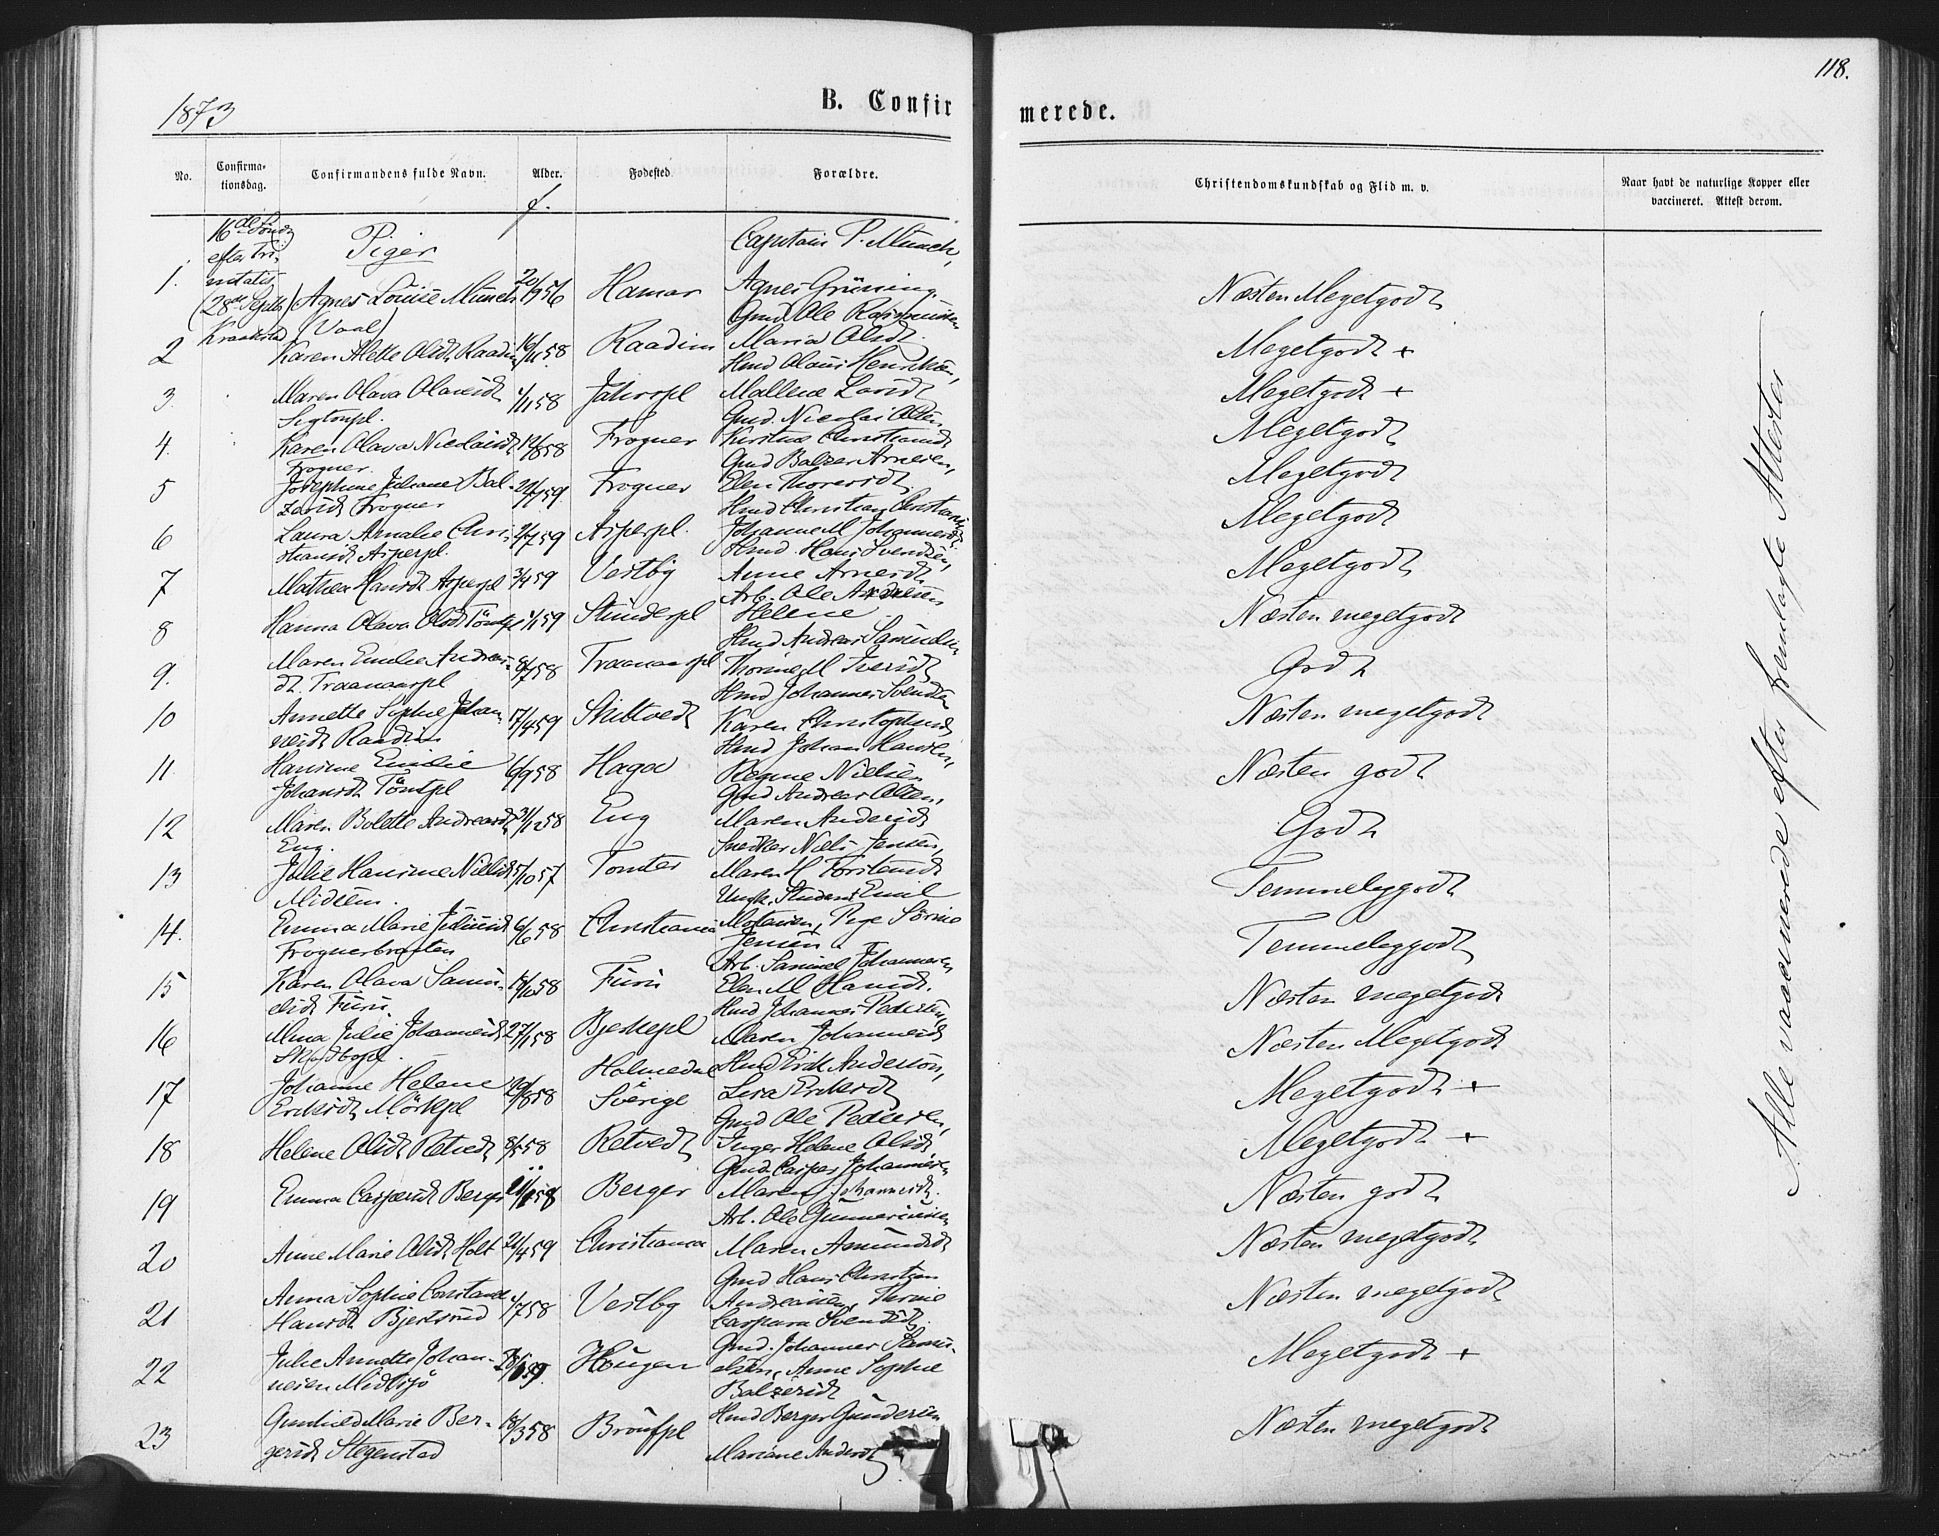 118.
1873
B. Confirmerede.
No. Confirmationsdag. Confirmandens fulde Navn. Alder. Fødested. Forældre. Christendomskundskab og Flid m. v. Naar havt de naturlige Kopper eller vaccineret. Attest derom.
f.
16de Sønd. efter Trinitatis (28de Septbr) Kraakstad
Piger
1. Agnes Louise Münch (Vaal) 20/9 56 Hamar Captain P. Münch, Agnes Grüning. Næsten Megetgodt
2 Karen Alette Olsdt Raadim 16/11 58. Raadim Gmd. Ole Rasmussen Maria Olsdt. Megetgodt +
3. Maren Olava Olausdt 1/11 58 Jahrspl Hmd Olaus Henriksen, Mallene Larsdt Megetgodt +
4. Karen Olava Nicolaisdt Frogner. 12/8 58 Frogner Gmd. Nicolai Olsen, Kirstine Christiansdt Megetgodt
5 Josephine Juliane Balzersdt Frogner Frogner Gmd Balzer Arnesen, Elen Thoresdt. Megetgodt
6 Laura Amalie Christiansdt Asperpl. 2/7 59 Asperpl. Hmd Christian Christiansen Johanne M Johannesdt. Megetgodt
7 Mathea Hansdt Asperpl 3/4 59 Vestby Hmd. Hans Svendsen, Anne Arnesdt Megetgodt
8 Hanna Olava Olsdt 1/1 59 Stunderpl Arb. Ole Andersen Helene Næsten megetgodt
9. Maren Emilie Andreasdt. Traanaarpl 8/7 58 Traanaarpl Hmd Andreas Samuelsen Thorine M Iversdt Godt
10 Annette Sophie Johannesdt Raadim 17/4 59 Skibtvedt Hmd Johannes Svendsen Karen Christophersdt Næsten megetgodt
11. Hansine Emilie Johansdt Töntpl 6/9 58 Haga Hmd Johan Hansen, Regine Nielsen Næsten godt
12 Maren Bolette Andreasdt Eng. 31/12 58 Eng Gmd Andreas Olsen, Maren Andersdt Godt
13 Julie Hansine Nielsdt 5/10 57 Tomter Snedker Niels Jensen, Maren H Torstensdt Temmeliggodt
14. Emma Marie Frognerbraaten 6/6 58 Christiania Ungk. Student Emil Mortensen, Pige Sörine Jensen. Temmeliggodt
15 Karen Olava Samuelsdt Furu. 18/10 58 Furu Arb. Samuel Johannesen Elen M Hansdt. Næsten megetgodt
16 Alma Julie Johannesdt 27/1 58 Bjerkepl Hmd Johannes Pedersen, Maren Johannesdt Næsten Megetgodt
17 Johanne Helene Eriksdt Mörkpl 10/8 58 Holmedal Sverige Hmd Erik Anderson, Lisa Eriksdt Megetgodt +
18 Helene Olsdt Retvedt 8/5 58 Retvedt Gmd Ole Pedersen, Inger Helene Olsdt Megetgodt +
19 Emma Caspersdt Berger Berger Gmd. Casper Johannesen Maren J. Johannesdt. Næsten godt
20 Anne Marie Olsdt Holt 21/4 59 Christiania Arb. Ole Maren Amundsdt Næsten megetgodt
21 Anna Sophie Constance Hansdt Bjertsrud 1/7 58 Vestby Gmd Hans Christian Andreassen, Thrine Caspara Svendsdt. Næsten megetgodt
22 Julie Annette Johannesen Midtsjö Haugen Gmd. Johannes Samuelsen, Anne Sophie Balzersdt Megetgodt +
23 Gunhild Marie Bergersdt Stegenstad 18/3 58 Bröutpl Hmd Berger Gundersen Mariane Andersdt Næsten megetgodt
Alle vaccinerede efter fremlagte Attester